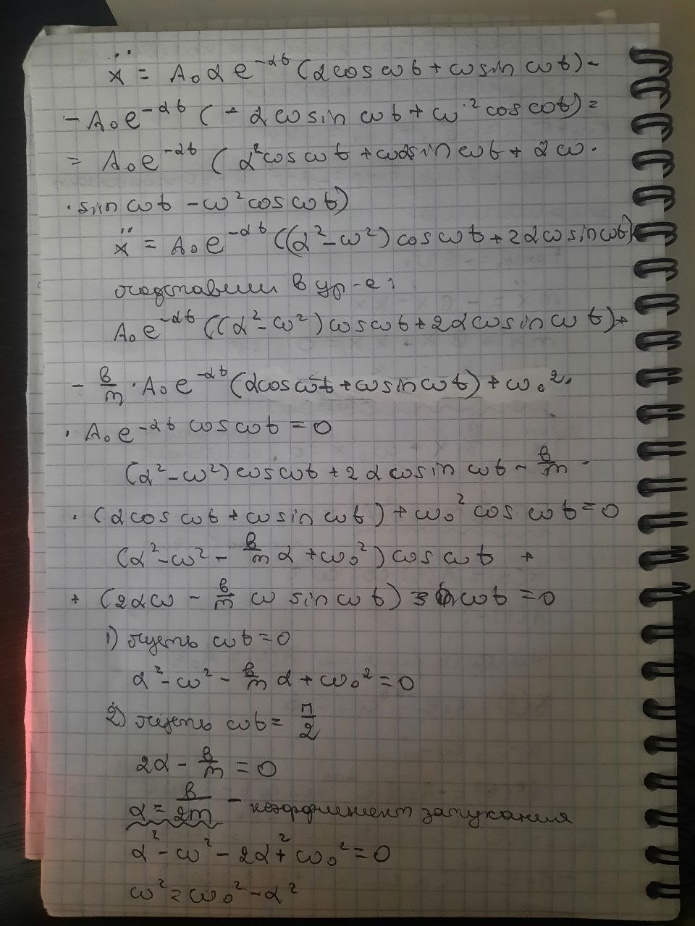 ẍ = A₀αe^(-αt) (αcos ωt + ωsin ωt) -
- A₀e^(-αt) (-αωsin ωt + ω² cos ωt) =
= A₀e^(-αt) (α²cos ωt + ωαsin ωt + αω ·
· sin ωt - ω²cos ωt)
ẍ = A₀e^(-αt) ((α²-ω²) cos ωt + 2αωsin ωt)
подставим в ур-е:
A₀e^(-αt) ((α²-ω²) cos ωt + 2αωsin ωt) +
- b/m · A₀e^(-αt) (αcos ωt + ωsin ωt) + ω₀² ·
· A₀e^(-αt) cos ωt = 0
(α²-ω²) cos ωt + 2αωsin ωt - b/m ·
· (αcos ωt + ωsin ωt) + ω₀² cos ωt = 0
(α²-ω² - b/m α + ω₀²) cos ωt +
+ (2αω - b/m ω sin ωt) ωt = 0
1) пусть ωt = 0
α²-ω² - b/m α + ω₀² = 0
2) пусть ωt = π/2
2α - b/m = 0
α = b/2m - коэффициент затухания
α² - ω² - 2α² + ω₀² = 0
ω² = ω₀² - α²